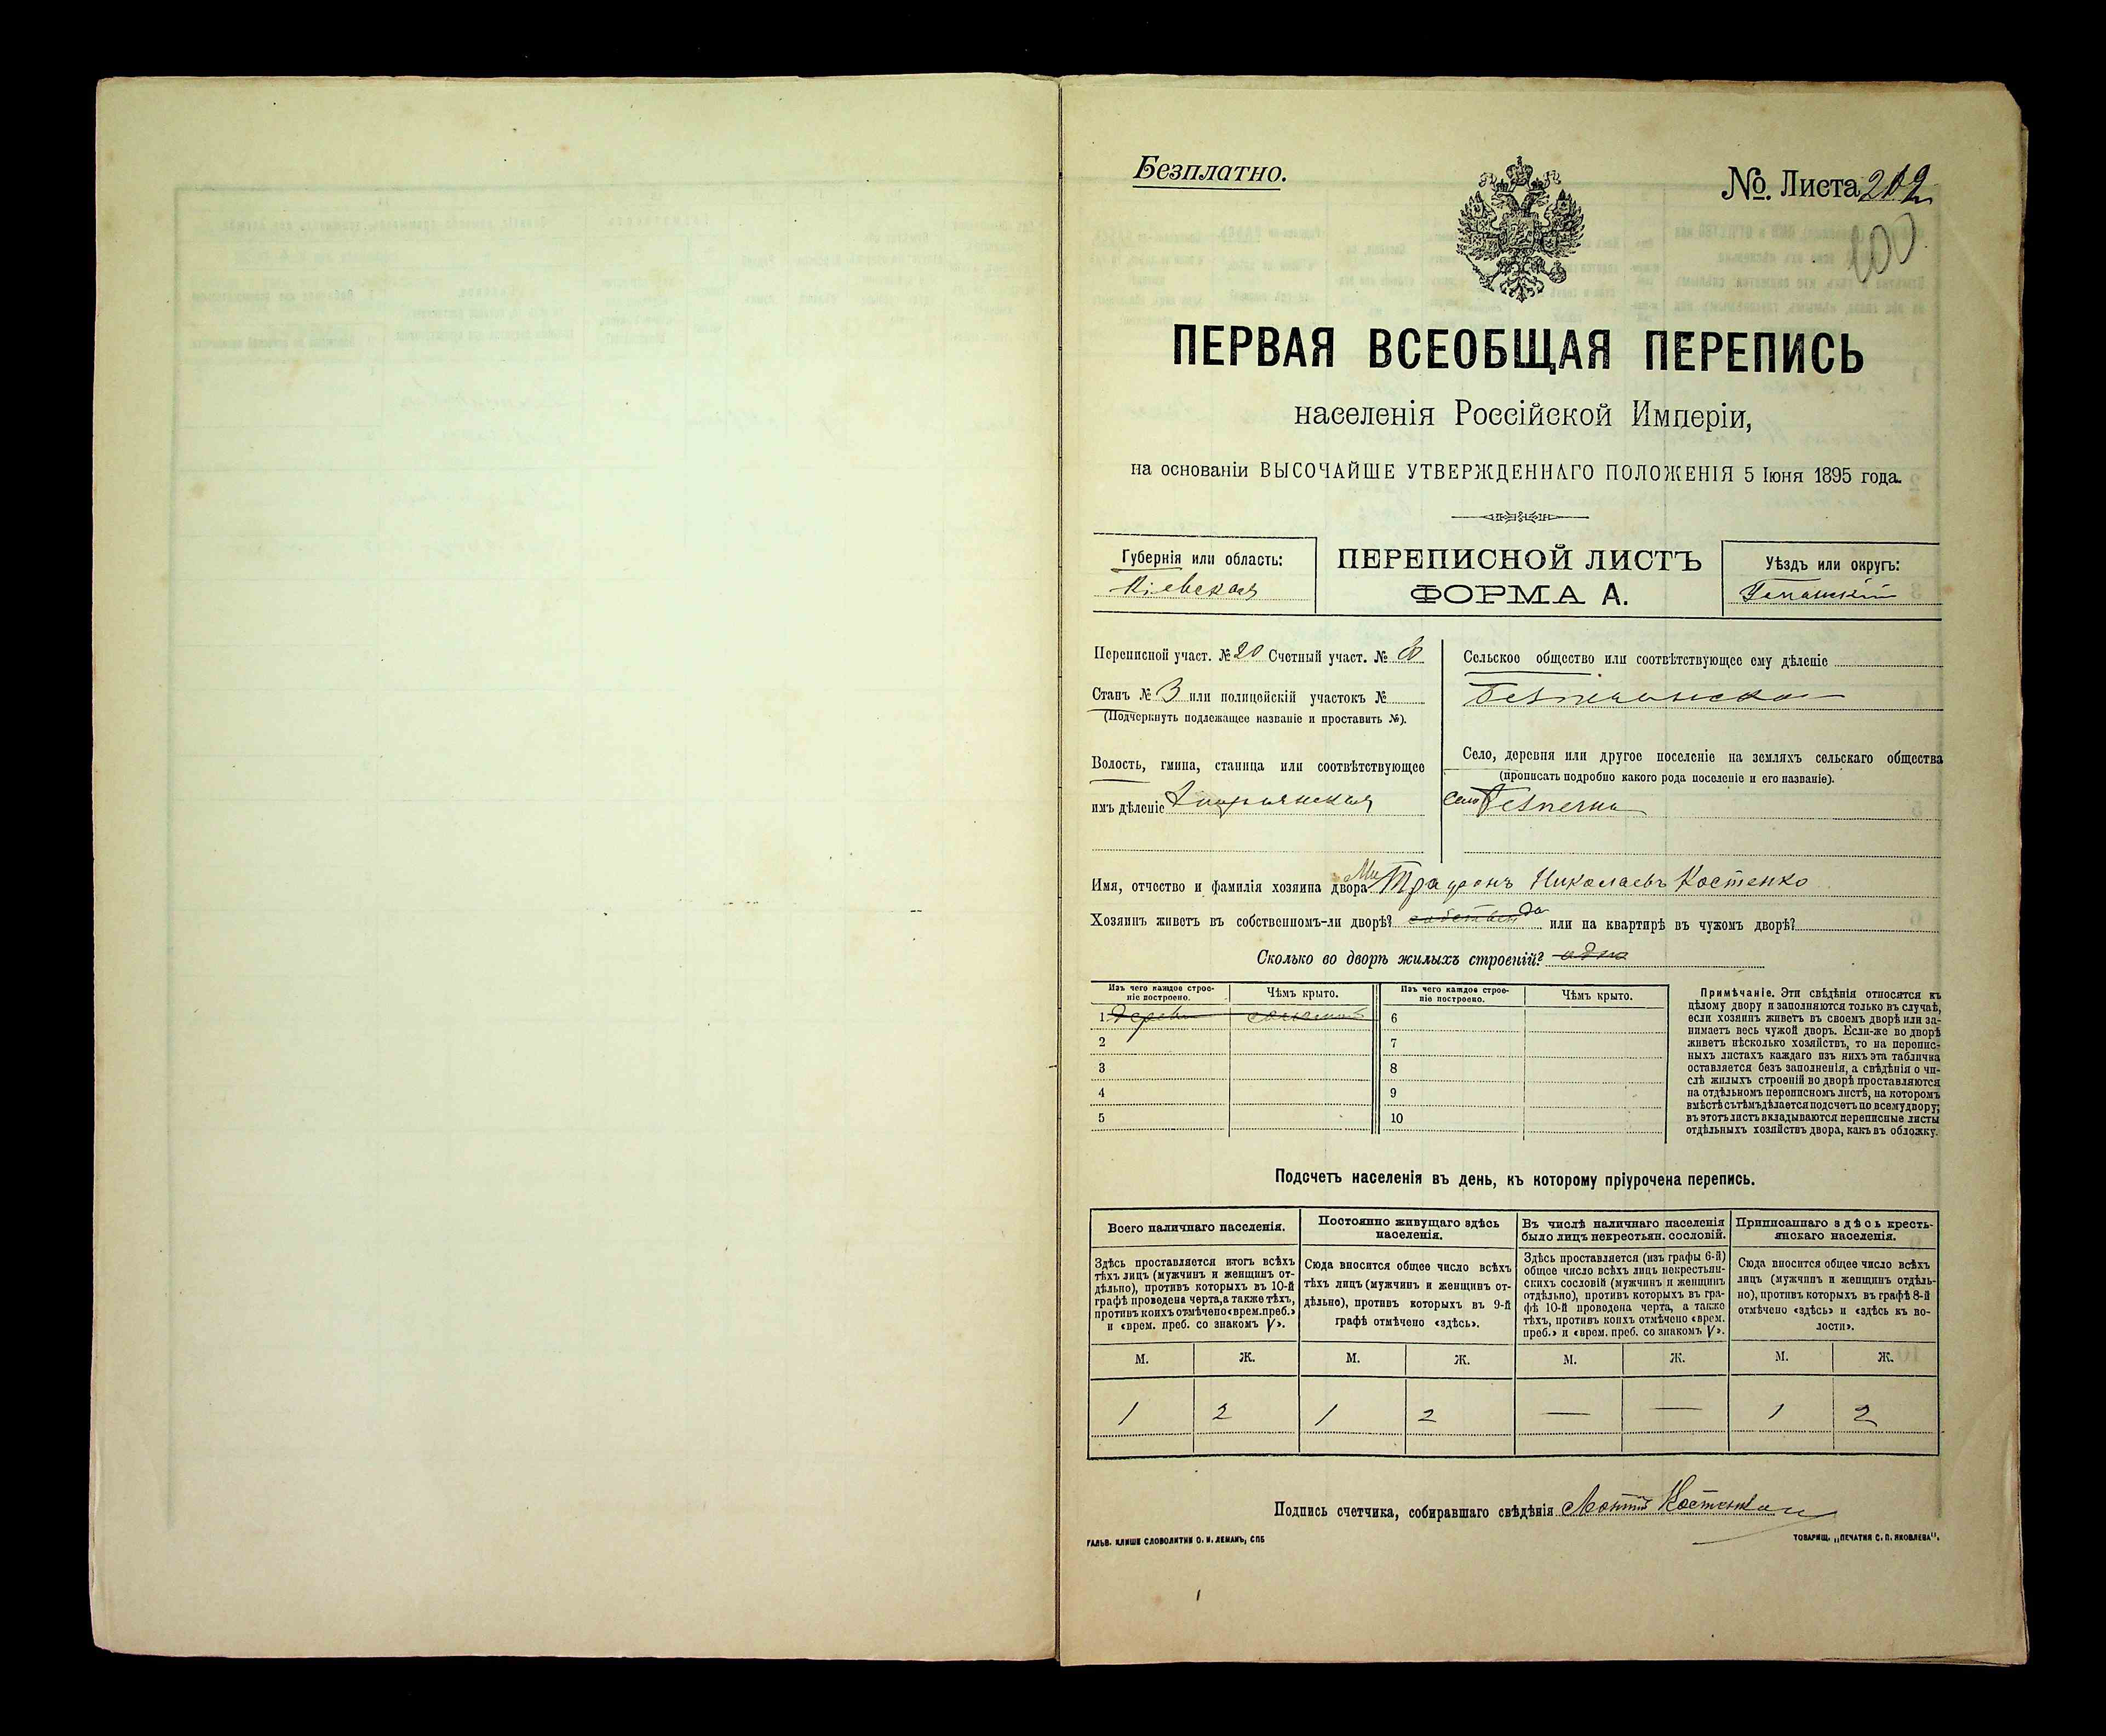 Безплатно.
№. Листа 202
200
ПЕРВАЯ ВСЕОБЩАЯ ПЕРЕПИСЬ
населенія Россійской Имперіи,
на основаніи ВЫСОЧАЙШЕ УТВЕРЖДЕННАГО ПОЛОЖЕНІЯ 5 Іюня 1895 года.
Губернія или область:
Кіевская
ПЕРЕПИСНОЙ ЛИСТЪ
ФОРМА А.
Уѣздъ или округъ:
Уманскій
Переписной участ. № 20 Счетный участ. № 8
Станъ № 3 или полицейскій участокъ №
(Подчеркнуть подлежащее названіе и проставить №).
Волость, гмина, станица или соотвѣтствующее
имъ дѣленіе
Сельское общество или соотвѣтствующее ему дѣленіе
Безпечанское
Село, деревня или другое поселеніе на земляхъ сельскаго общества
(прописать подробно какого рода поселеніе и его названіе).
Село Безпечна
Имя, отчество и фамилія хозяина двора Митрафонъ Николаевъ Костенко
Хозяинъ живетъ въ собственномъ-ли дворѣ? собствен да или на квартирѣ въ чужомъ дворѣ?
Сколько во дворѣ жилыхъ строеній? одно
Изъ чего каждое строе-
ніе построено.
Чѣмъ крыто.
Изъ чего каждое строе-
ніе построено.
Чѣмъ крыто.
1 дерева соломой 6
2 7
3 8
4 9
5 10
Примѣчаніе. Эти свѣдѣнія относятся къ
цѣлому двору и заполняются только въ случаѣ,
если хозяинъ живетъ въ своемъ дворѣ или за-
нимаетъ весь чужой дворъ. Если-же во дворѣ
живетъ нѣсколько хозяйствъ, то на перепис-
ныхъ листахъ каждаго изъ нихъ эта табличка
оставляется безъ заполненія, а свѣдѣнія о чи-
слѣ жилыхъ строеній во дворѣ проставляются
на отдѣльномъ переписномъ листѣ, на которомъ
вмѣстѣ съ тѣмъ дѣлается подсчетъ по всему двору;
въ этотъ листъ вкладываются переписные листы
отдѣльныхъ хозяйствъ двора, какъ въ обложку.
Подсчетъ населенія въ день, къ которому пріурочена перепись.
Всего наличнаго населенія.
Здѣсь проставляется итогъ всѣхъ
тѣхъ лицъ (мужчинъ и женщинъ от-
дѣльно), противъ которыхъ въ 10-й
графѣ проведена черта, а также тѣхъ,
противъ коихъ отмѣчено «врем. преб.»
и «врем. преб. со знакомъ V».
Постоянно живущаго здѣсь
населенія.
Сюда вносится общее число всѣхъ
тѣхъ лицъ (мужчинъ и женщинъ от-
дѣльно), противъ которыхъ въ 9-й
графѣ отмѣчено «здѣсь».
Въ числѣ наличнаго населенія
было лицъ некрестьян. сословій.
Здѣсь проставляется (изъ графы 6-й)
общее число всѣхъ лицъ некрестьян-
скихъ сословій (мужчинъ и женщинъ
отдѣльно), противъ которыхъ въ гра-
фѣ 10-й проведена черта, а также
тѣхъ, противъ коихъ отмѣчено «врем.
преб.» и «врем. преб. со знакомъ V».
Приписаннаго здѣсь кресть-
янскаго населенія.
Сюда вносится общее число всѣхъ
лицъ (мужчинъ и женщинъ отдѣль-
но), противъ которыхъ въ графѣ 8-й
отмѣчено «здѣсь» и «здѣсь къ во-
лости».
М. Ж. М. Ж. М. Ж. М. Ж.
1 2 1 2 — — 1 2
Подпись счетчика, собиравшаго свѣдѣнія Костенко
ГАЛЬВ. КЛИШЕ СЛОВОЛИТНИ О. И. ЛЕМАНЪ, СПБ
ТОВАРИЩ. „ПЕЧАТНЯ С. П. ЯКОВЛЕВА".